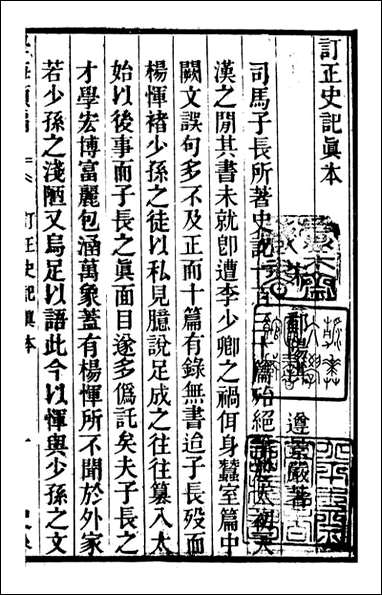 訂正史記眞本
鄱陽 遵 景嚴著
司馬子長所著史記一百三十篇始絕 太初天
漢之閒其書未就卽遭李少卿之禍佴身蠶室篇中
闕文誤句多不及正而十篇有錄無書迨子長歿而
楊惲褚少孫之徒以私見臆說足成之往往纂入太
始以後事而子長之眞面目遂多僞託矣夫子長之
才學宏博富麗包涵萬象蓋有楊惲所不聞於外家
若少孫之淺陋又烏足以語此今以惲與少孫之文
訂正史記眞本 一